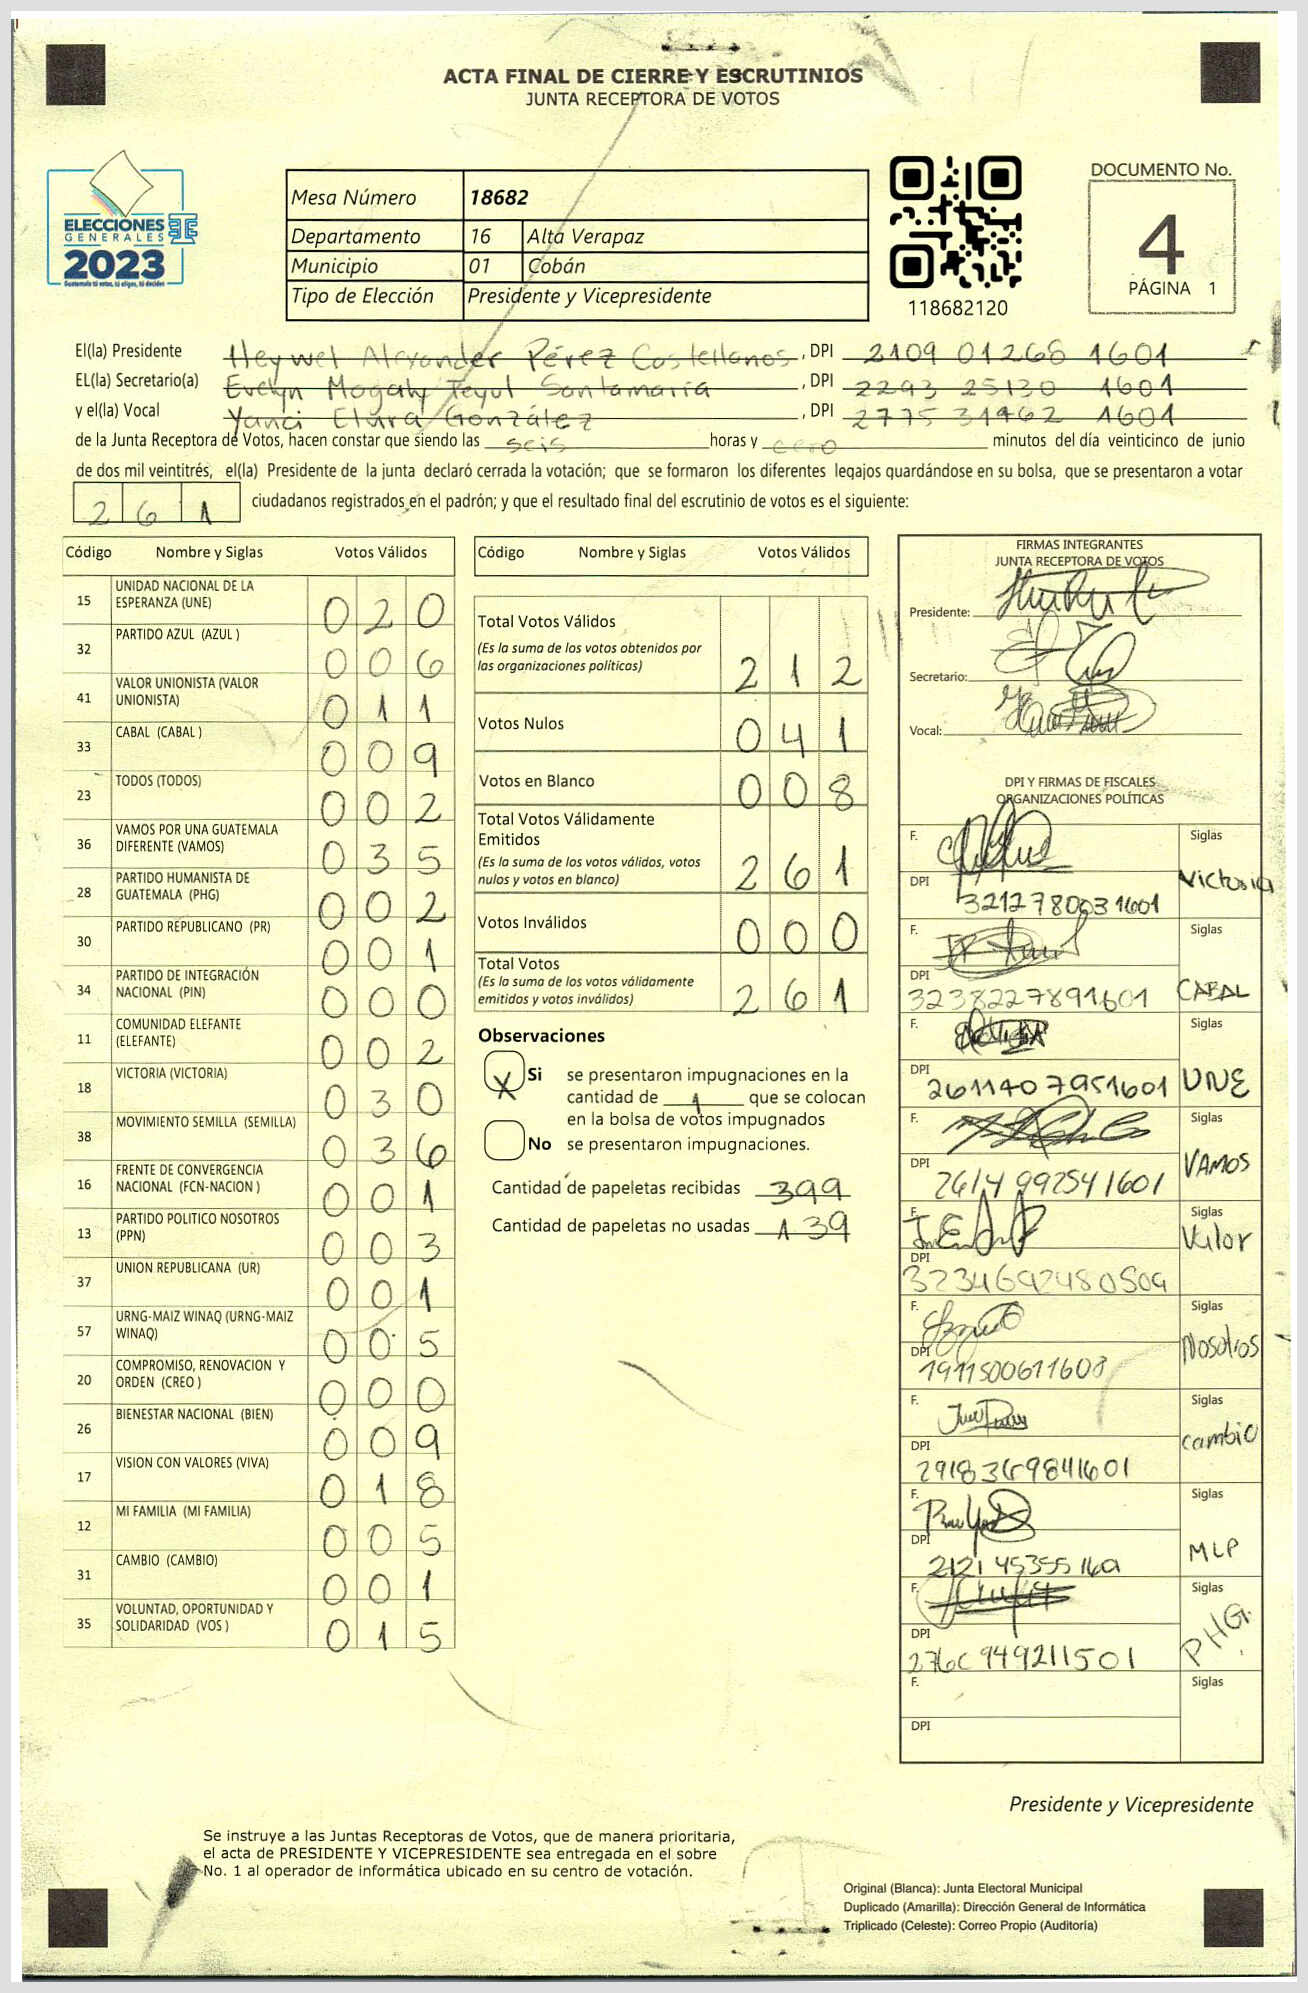 ACTA FINAL DE CIERRE Y ESCRUTINIOS
JUNTA RECEPTORA DE VOTOS
ELECCIONES
GENERALES
2023
Guatemala tú votas, tú eliges, tú decides
Mesa Número 18682
Departamento 16 Alta Verapaz
Municipio 01 Cobán
Tipo de Elección Presidente y Vicepresidente
118682120
DOCUMENTO No.
4
PÁGINA 1
El(la) Presidente Heywel Alexander Pérez Castellanos, DPI 2109 01268 1601
EL(la) Secretario(a) Evelyn Magaly Teyul Santamaría, DPI 2293 25130 1601
y el(la) Vocal Yanci Elvira González, DPI 2775 31462 1601
de la Junta Receptora de Votos, hacen constar que siendo las seis horas y cero minutos del día veinticinco de junio
de dos mil veintitrés, el(la) Presidente de la junta declaró cerrada la votación; que se formaron los diferentes legajos quardándose en su bolsa, que se presentaron a votar
2 6 1 ciudadanos registrados en el padrón; y que el resultado final del escrutinio de votos es el siguiente:
Código Nombre y Siglas Votos Válidos
15 UNIDAD NACIONAL DE LA ESPERANZA (UNE) 0 2 0
32 PARTIDO AZUL (AZUL ) 0 0 6
41 VALOR UNIONISTA (VALOR UNIONISTA) 0 1 1
33 CABAL (CABAL ) 0 0 9
23 TODOS (TODOS) 0 0 2
36 VAMOS POR UNA GUATEMALA DIFERENTE (VAMOS) 0 3 5
28 PARTIDO HUMANISTA DE GUATEMALA (PHG) 0 0 2
30 PARTIDO REPUBLICANO (PR) 0 0 1
34 PARTIDO DE INTEGRACIÓN NACIONAL (PIN) 0 0 0
11 COMUNIDAD ELEFANTE (ELEFANTE) 0 0 2
18 VICTORIA (VICTORIA) 0 3 0
38 MOVIMIENTO SEMILLA (SEMILLA) 0 3 6
16 FRENTE DE CONVERGENCIA NACIONAL (FCN-NACION ) 0 0 1
13 PARTIDO POLITICO NOSOTROS (PPN) 0 0 3
37 UNION REPUBLICANA (UR) 0 0 1
57 URNG-MAIZ WINAQ (URNG-MAIZ WINAQ) 0 0 5
20 COMPROMISO, RENOVACION Y ORDEN (CREO ) 0 0 0
26 BIENESTAR NACIONAL (BIEN) 0 0 9
17 VISION CON VALORES (VIVA) 0 1 8
12 MI FAMILIA (MI FAMILIA) 0 0 5
31 CAMBIO (CAMBIO) 0 0 1
35 VOLUNTAD, OPORTUNIDAD Y SOLIDARIDAD (VOS ) 0 1 5
Código Nombre y Siglas Votos Válidos
Total Votos Válidos
(Es la suma de los votos obtenidos por
las organizaciones políticas) 2 1 2
Votos Nulos 0 4 1
Votos en Blanco 0 0 8
Total Votos Válidamente
Emitidos
(Es la suma de los votos válidos, votos
nulos y votos en blanco) 2 6 1
Votos Inválidos 0 0 0
Total Votos
(Es la suma de los votos válidamente
emitidos y votos inválidos) 2 6 1
Observaciones
X Si se presentaron impugnaciones en la
cantidad de 1 que se colocan
en la bolsa de votos impugnados
No se presentaron impugnaciones.
Cantidad de papeletas recibidas 399
Cantidad de papeletas no usadas 139
FIRMAS INTEGRANTES
JUNTA RECEPTORA DE VOTOS
Presidente:
Secretario:
Vocal:
DPI Y FIRMAS DE FISCALES
ORGANIZACIONES POLÍTICAS
F. Siglas
DPI 3212780031601 Victoria
F. Siglas
DPI 3238227891601 CABAL
F. Siglas
DPI 2611407951601 UNE
F. Siglas
DPI 2614992541601 VAMOS
F. Siglas
DPI 3234692480509 Valor
F. Siglas
DPI 1911500611608 Nosotros
F. Siglas
DPI 2918369841601 cambio
F. Siglas
DPI MLP
F. Siglas
DPI PHG.
F. Siglas
DPI
Presidente y Vicepresidente
Se instruye a las Juntas Receptoras de Votos, que de manera prioritaria,
el acta de PRESIDENTE Y VICEPRESIDENTE sea entregada en el sobre
No. 1 al operador de informática ubicado en su centro de votación.
Original (Blanca): Junta Electoral Municipal
Duplicado (Amarilla): Dirección General de Informática
Triplicado (Celeste): Correo Propio (Auditoría)